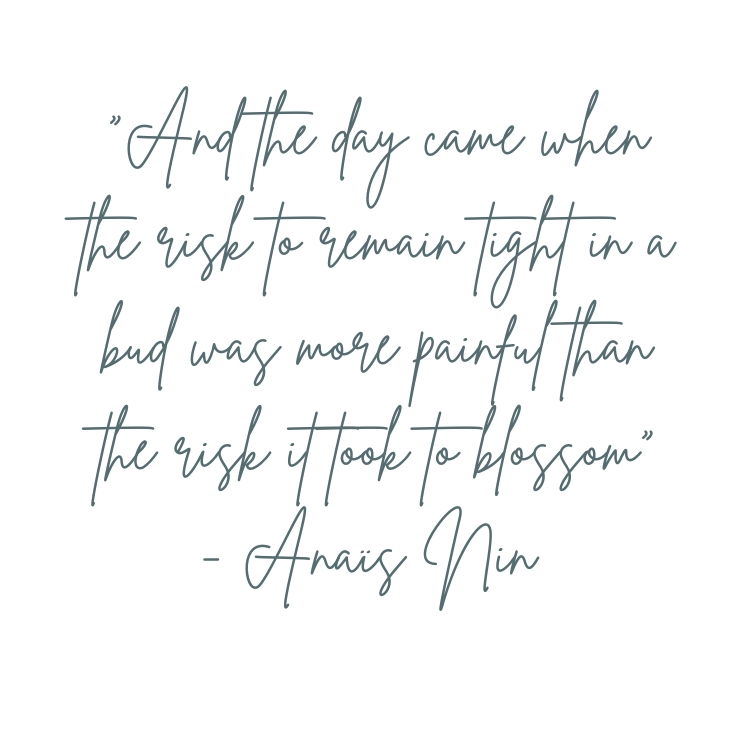 ”And the day came when
the risk to remain tight in a
bud was more painful than
the risk it took to blossom”
- Anaïs Nin